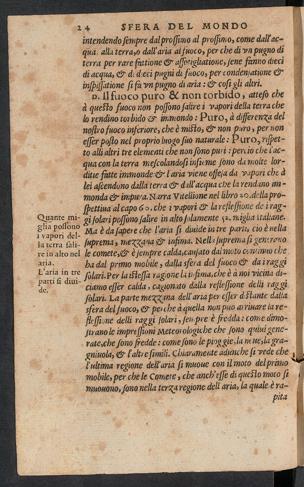 24 SFERA DEL MONDO
intendendo sempre dal prossimo al prossimo, come dall'ac-
qua alla terra, o dall'aria al fuoco, per che di vn pugno di
terra per rare fattione & assotigliatione, sene fanno dieci
di acqua, & di dieci pugni di fuoco, per condensatione &
inspissatione si fa vn pugno di aria: & così gli altri.
D. Il fuoco puro & non torbido, atteso che
à questo fuoco non possono salire i vapori della terra che
lo rendino torbido & immondo: Puro, à differenza del
nostro fuoco inferiore, che è misto, & non puro, per non
esser posto nel proprio luogo suo naturale: Puro, rispet-
to alli altri tre elementi che non sono puri: percio che l'ac-
qua con la terra mescolandosi insieme sono da molte lor-
ditie fatte immonde & l'aria viene offesa da vapori che à
lei ascendono dalla terra & dall'acqua che la rendano im-
monda & impura. Narra Vitellione nel libro 10. della pro-
spettiua al capo 60. che i vapori & la reflessione de i rag-
Quante mi-
glia possono
i vapori del-
la terra sali-
re in alto nel
aria.
L'aria in tre
parti si diui-
de.
gi solari possono salire in alto solamente miglia italiane.
Ma è da sapere che l'aria si diuide in tre parti, cio è nella
suprema, mezzana & infima. Nella suprema si generano
le comete, & è sempre calda, causato dal moto che
ha dal primo mobile, dalla sfera del fuoco & da i raggi
solari. Per la istessa ragione la infima, che è à noi vicina di-
ciamo esser calda, cagionato dalla reflessione delli raggi
solari. La parte mezzana dell'aria per esser distante dalla
sfera del fuoco, & perche à quella non puo arriuare la re-
flessione delli raggi solari, sempre è fredda: come dimo-
strano le impressioni Meteorologiche che sono quiui gene-
rate, che sono fredde: come sono le pioggie, la neue, la gra-
gniuola, & l'altre simili. Chiaramente adunche si vede che
l'ultima regione dell'aria si muoue con il moto del primo
mobile, per che le Comete, che anch'esse di questo moto si
muouono, sono nella terza regione dell'aria, la quale è ra-
pita